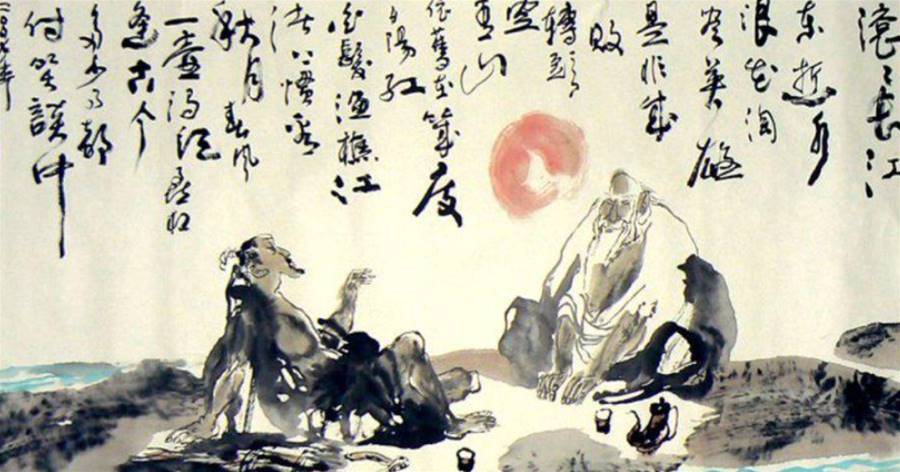 滚滚長江
东逝水
浪花淘
尽英雄
是非成
败
轉頭
空
青山
依舊在幾度
夕陽红
白髮渔樵江
渚上惯看
秋月春风
一壶浊酒喜相
逢古今
多少事都
付笑談中